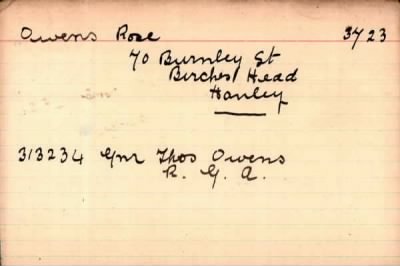 Owens Rose 3723
70 Burnley St
Birches Head
Hanley
313234 Gnr Thos Owens
R. G. A.